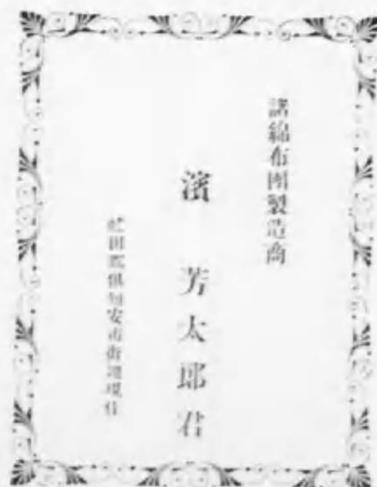 諸綿布團製造商
濱芳太郎君
虻田郡倶知安市街地現住